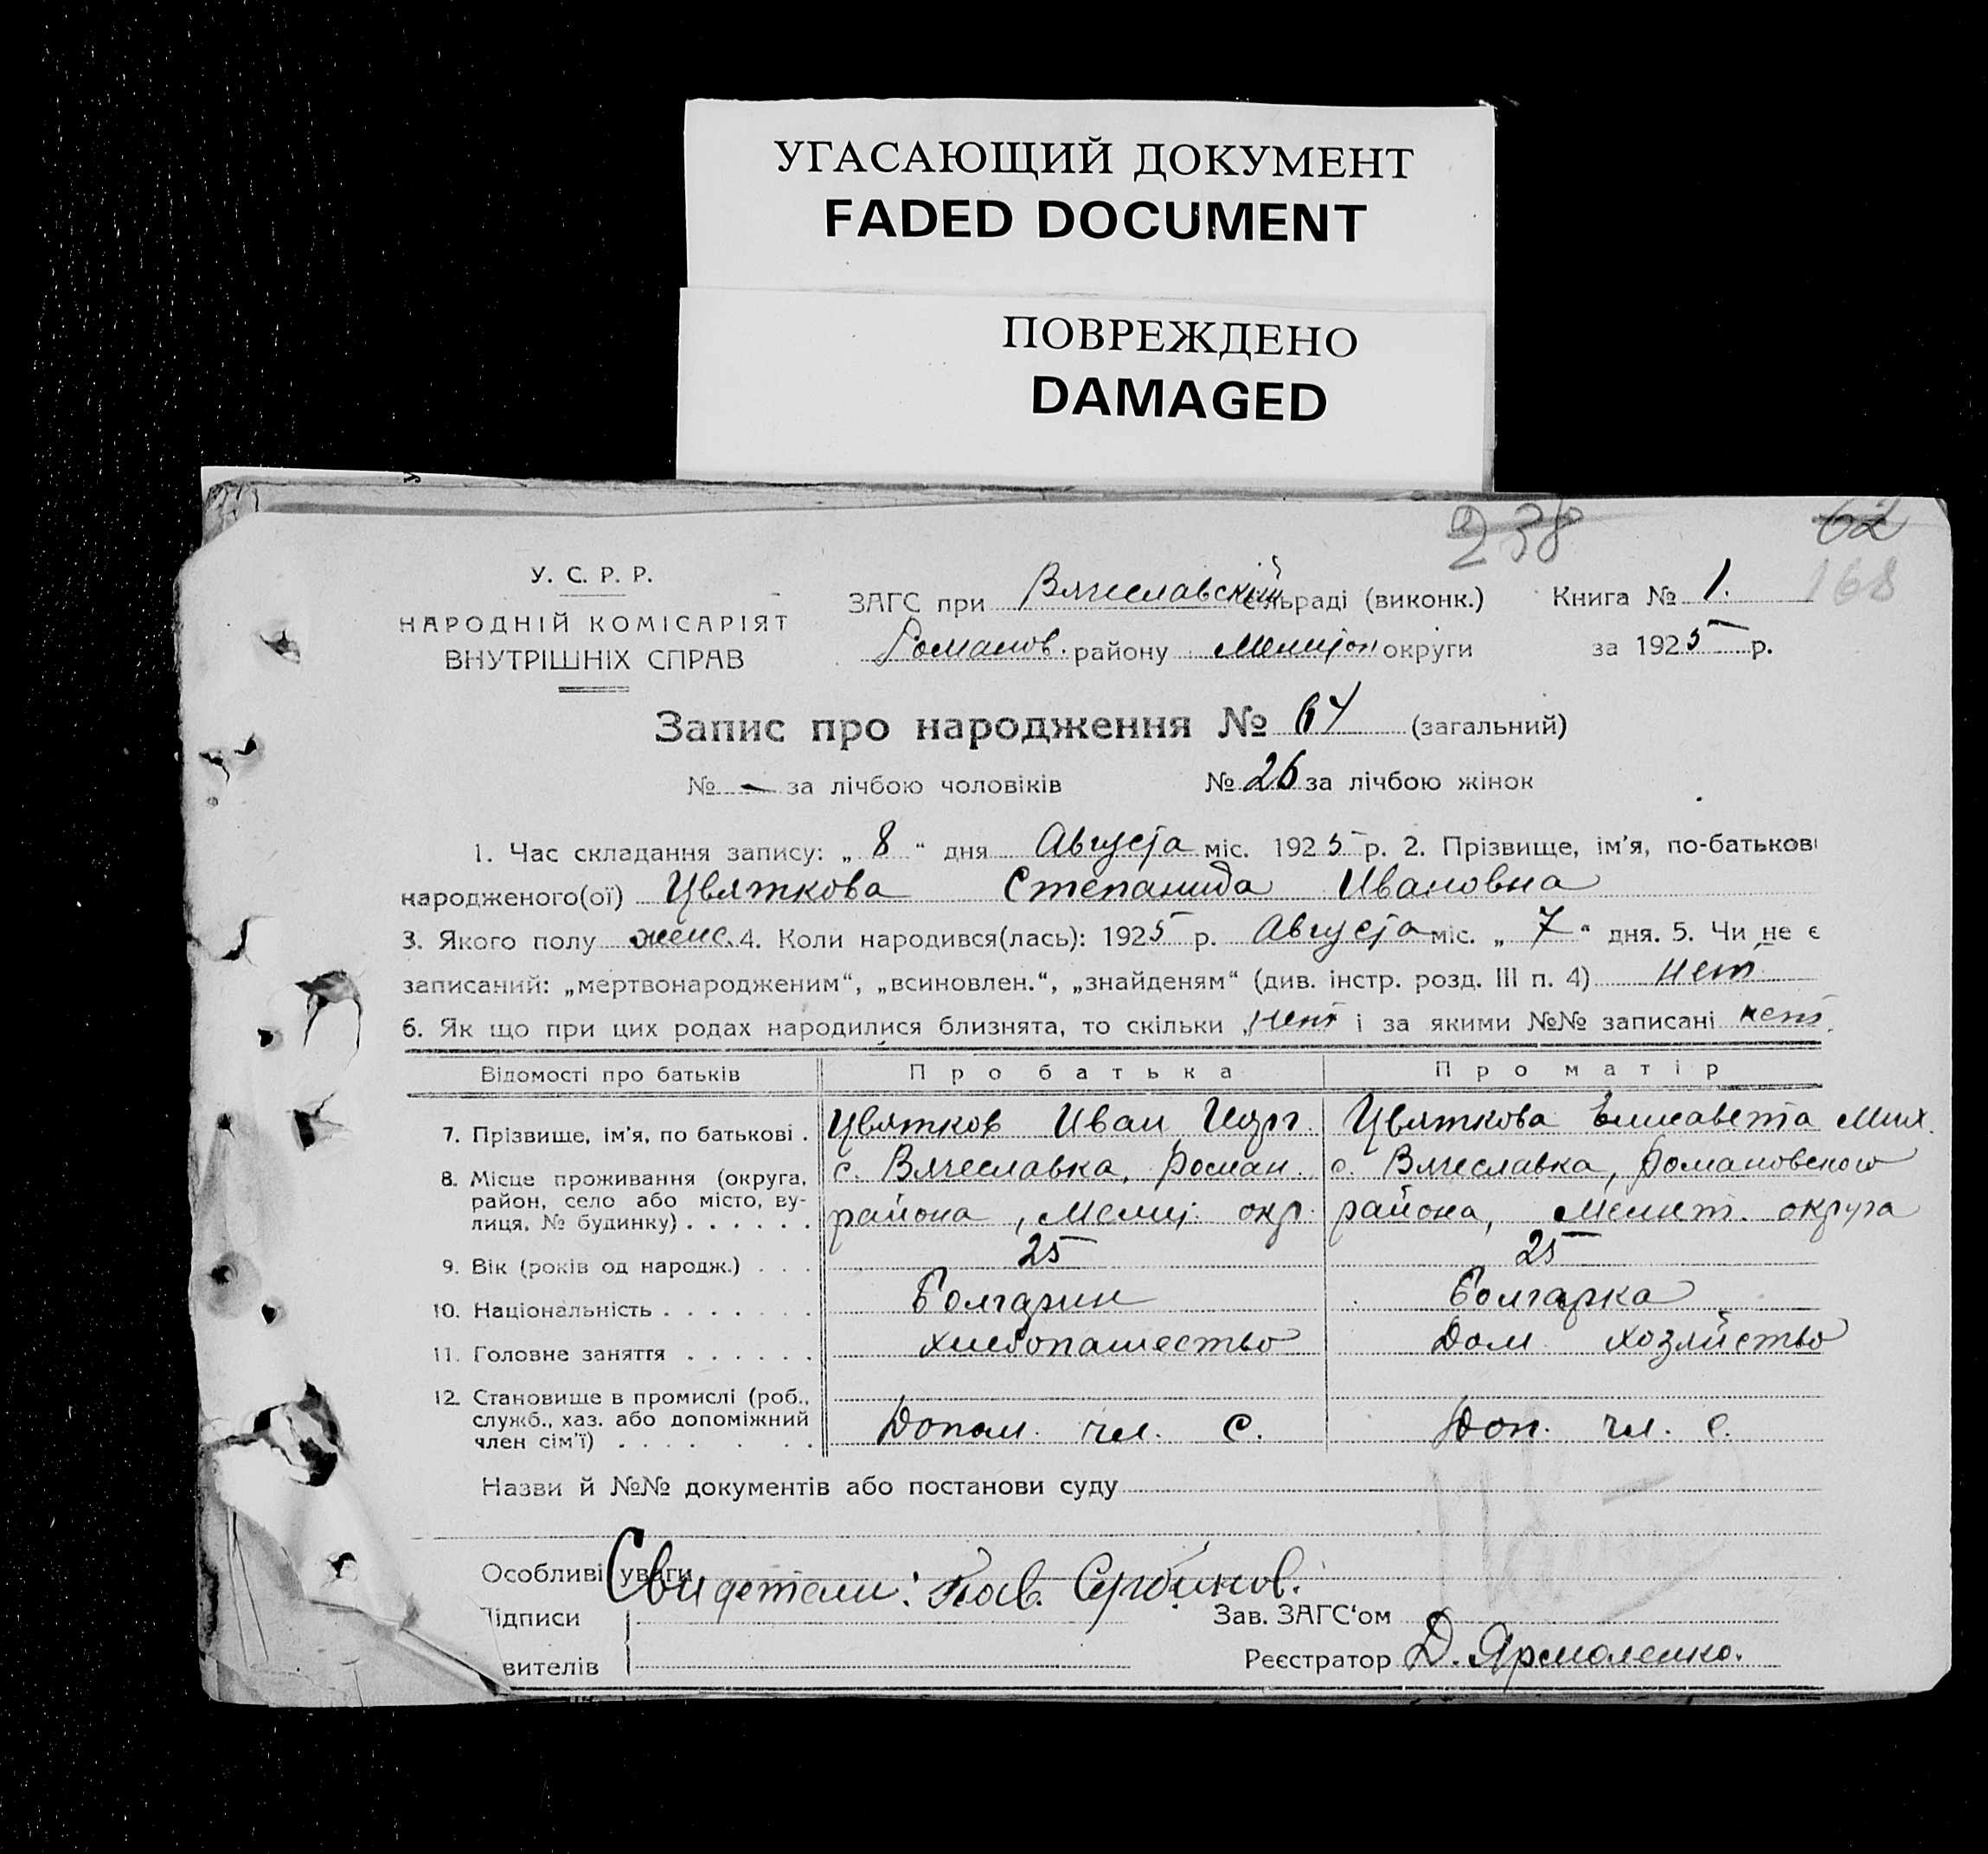 УГАСАЮЩИЙ ДОКУМЕНТ
FADED DOCUMENT
ПОВРЕЖДЕНО
DAMAGED
238 62
168
У. С. Р. Р.
НАРОДНІЙ КОМІСАРІЯТ
ВНУТРІШНІХ СПРАВ
ЗАГС при Вячеславский сільраді (виконк.) Книга № 1.
Романов. району Мелитоп округи за 1925 р.
Запис про народження № 64 (загальний)
№ — за лічбою чоловіків № 26 за лічбою жінок
1. Час складання запису: „ 8 “ дня Августа міс. 1925 р. 2. Прізвище, ім'я, по-батькові
народженого(ої) Цвяткова Степанида Ивановна
3. Якого полу женс. 4. Коли народився(лась): 1925 р. Августа міс. „ 7 “ дня. 5. Чи не є
записаний: „мертвонародженим“, „всиновлен.“, „знайденям“ (див. інстр. розд. III п. 4) нет
6. Як що при цих родах народилися близнята, то скільки нет і за якими №№ записані нет.
Відомості про батьків Про батька Про матір
7. Прізвище, ім'я, по батькові . Цвятков Иван Георг. Цвяткова Елисавета Мих.
8. Місце проживання (округа, с. Вячеславка, Роман. с. Вячеславка, Романовского
район, село або місто, ву-
лиця, № будинку) . . . . . . района, Мелит. окр. района, Мелит. округа
9. Вік (років од народж.) . . . 25 25
10. Національність . . . . . . . Болгарин Болгарка
11. Головне заняття . . . . . . хлебопашество Дом. хозяйство
12. Становище в промислі (роб.,
служб., хаз. або допоміжний
член сім'ї) . . . . . . . Допом. чл. с. Доп. чл. с.
Назви й №№ документів або постанови суду
Особливі уваги Свидетели: Пав. Сербинов.
ідписи Зав. ЗАГС'ом
вителів Реєстратор Д. Ярмоленко.